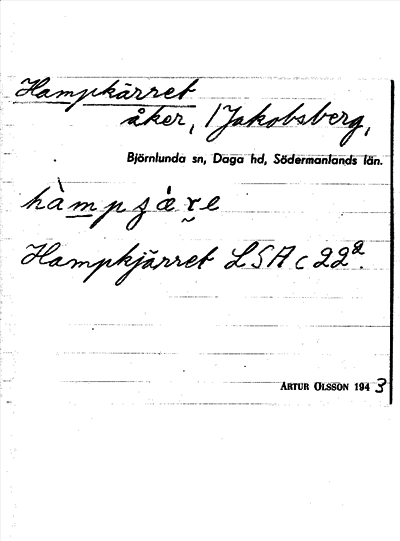 Hampkärret
åker, /Jakobsberg,
Björnlunda sn, Daga hd, Södermanlands län.
Hampkjärret LSA c 22²
ARTUR OLSSON 1943